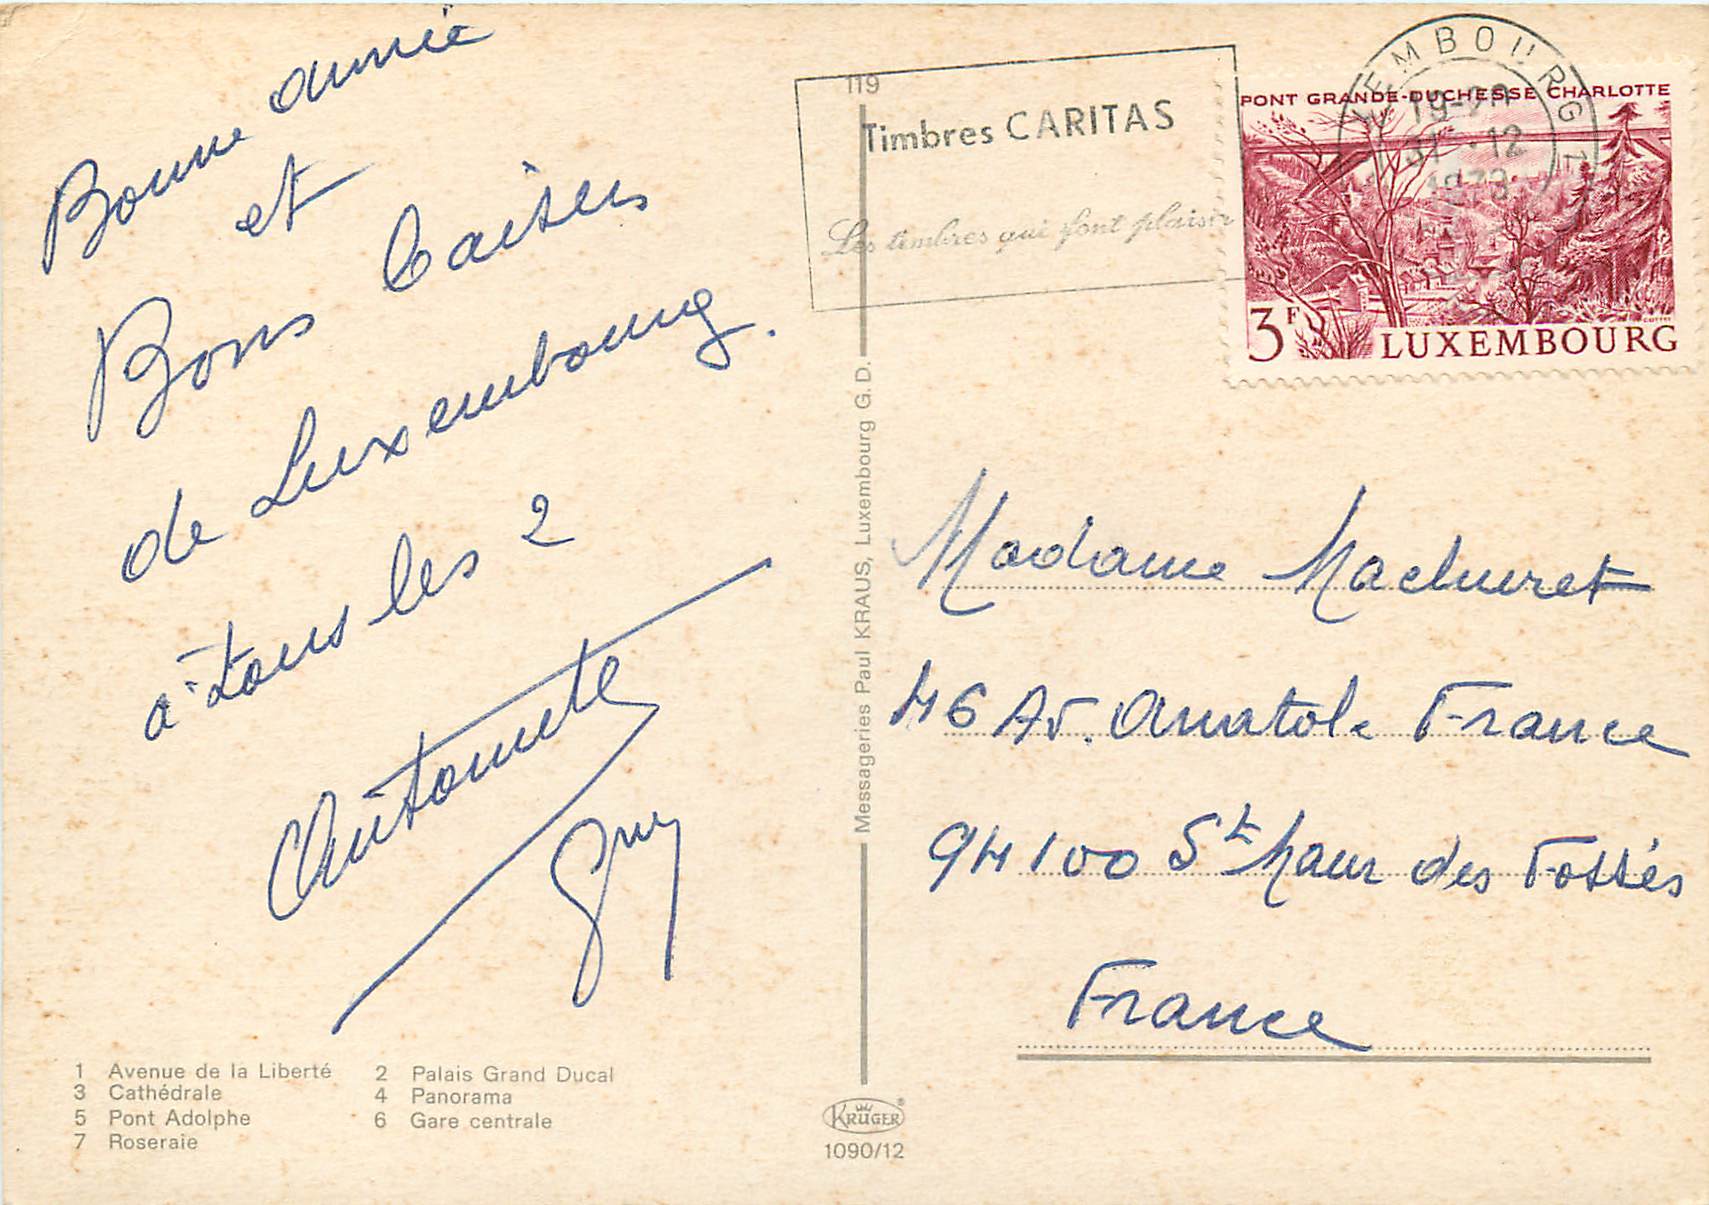 Bonne année
et
Bons baisers
de Luxembourg.
à tous les 2
Antoinette
Guy
1 Avenue de la Liberté
2 Palais Grand Ducal
3 Cathédrale
4 Panorama
5 Pont Adolphe
6 Gare centrale
7 Roseraie
119
Messageries Paul KRAUS, Luxembourg G. D.
KRÜGER®
1090/12
Timbres CARITAS
Les timbres qui font plaisir
LUXEMBOURG 1
19-20
31-12
PONT GRANDE-DUCHESSE CHARLOTTE
3F LUXEMBOURG
Madame Machuret
46 Av. Anatole France
94100 St Maur des Fossés
France